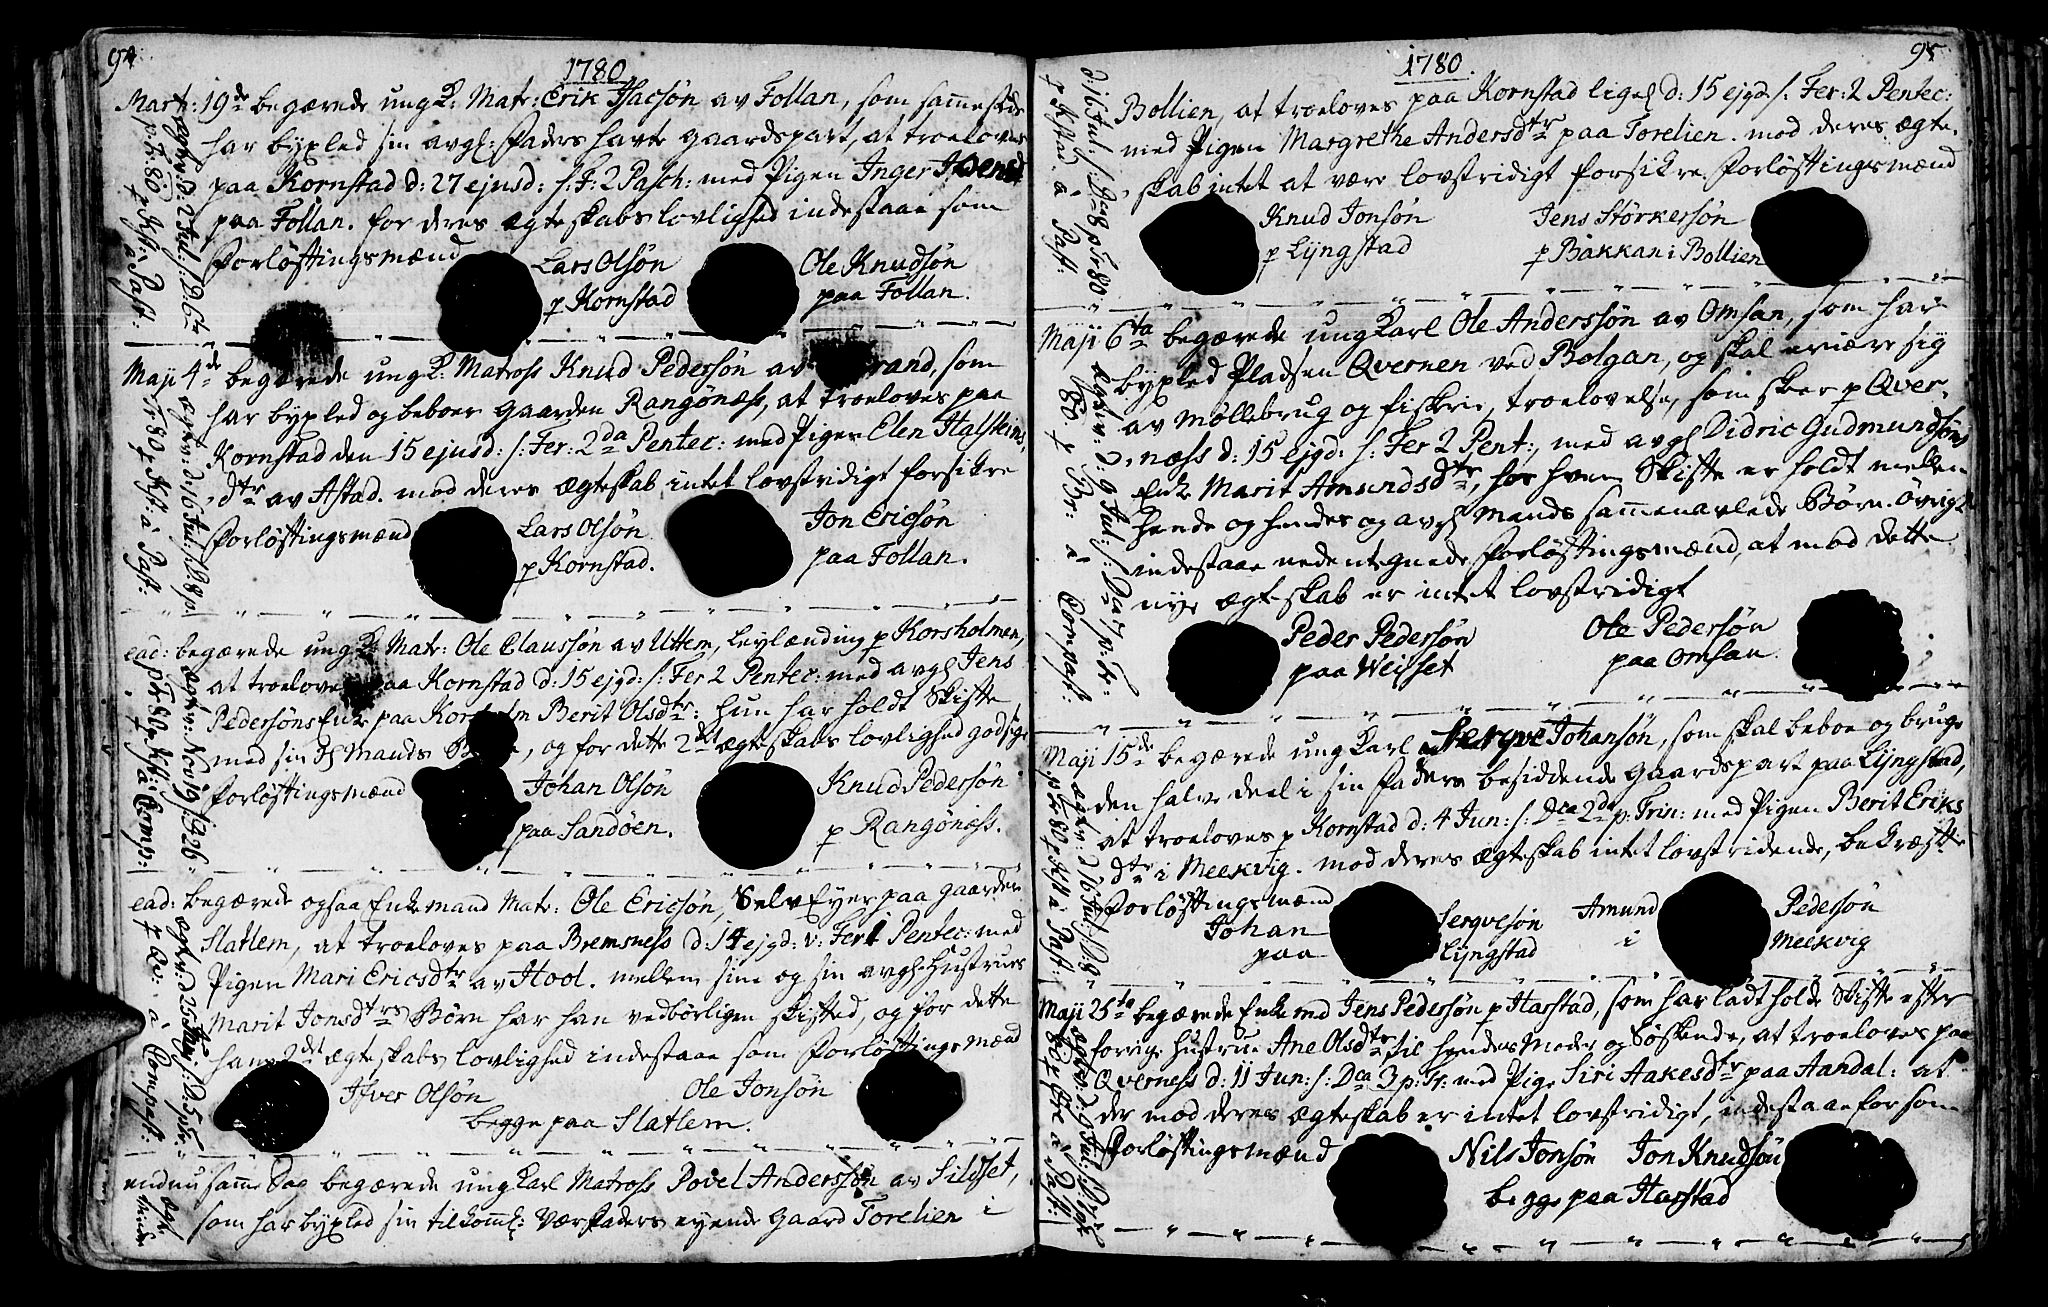 94.
1780
Mart: 19de begærede ung K: Matr: Erik Isacsön av Follan, som sammesteds
har bypled sin avgl: Faders havte gaardspart, at troeloves
paa Kornstad d: 27 ejusd: s: F: 2 Pasch: med Pigen Inger
paa Follan. for deres egteskabs lovlighed indestaae som
Forlöftingsmænd Lars Olsön Ole Knudsön
p Kornstad paa Follan.
Maji 4de begærede ung K: Matross Knud Pedersön av rand, som
har bypled og beboer gaarden Rangönæss, at troeloves paa
Kornstad den 15 ejusd: s: Fer: 2da Pentec: med Pigen Elen Halsteins
dtr av Astad. mod deres ægteskab intet lovstridigt forsikre
Forlöftingsmænd Lars Olsön Jon Ericsön
p Kornstad. paa Follan.
ead: begærede ung K: Matr: Ole Claussön av Uttem, Leylænding p Korsholmen,
at troeloves paa Kornstad d: 15 ejgd: s: Fer 2 Pentec: med avgl Jens
Pedersöns Enke paa Korsholm Berit Olsdtr: hun har holdt Skifte
med sin Mands , og for dette 2det ægteskabs lovlighed godsige
Forlöftingsmænd Johan Olsön Knud Pedersön
paa Sandöen. p Rangönæss.
ead: begærede ogsaa Enkemand Matr: Ole Ericsön, SelvEyer paa gaarden
Slatlem, at troeloves paa Bremsness d: 14 ejgd: v: Fer 1 Pentec: med
Pigen Mari Ericsdtr av Hool. mellem sine og sin avgl: Hustrues
Marit Jonsdtrs Börn har han vedbörligen skifted, og for dette
hans 2det ægteskabs lovlighed indestaae som Forlöftingsmænd
Ifver Olsön Ole Jonsön
begge paa Slatlem.
endnu samme Dag begærede ung Karl Matross Povel Anderssön av Sildset,
som har bypled sin tilkomml: Værfaders eyende gaard Torelien i
95
1780.
Bollien, at troeloves paa Kornstad lige d: 15 ejgd: s: Fer: 2 Pentec:
med Pigen Margrethe Andersdtr paa Torelien. mod deres ægte-
skab intet at være lovstridigt forsikre Forlöftingsmænd
Knud Jonsön Jens Störkersön
p Lÿngstad p Bakkan i Bollien
Maji 6ta begærede ung Karl Ole Anderssön av Omsan, som har
bypled Pladsen Qvernen ved Bolgan, og skal ernære sig
av Möllebrug og fiskrie, troelovelse, som skeer p Qver-
næss d: 15 ejgd: s: Fer 2 Pent:, med avgl Didric Gudmundsöns
Enke Marit Amundsdtr, for hvem Skifte er holdt mellem
hende og hendes og avgl Mands sammenavlede Börn. Övrigt
indestaae nedentegnede Forlöftingsmænd, at mod dette
nye ægteskab er intet lovstridigt
Peder Pedersön Ole Pedersön
paa Weisset paa Omsan
Maji 15de begærede ung Karl Serqve Johansön, som skal beboe og bruge
den halve deel i sin Faders besiddende gaardspart paa Lÿngstad,
at troeloves p Kornstad d: 4 Jun: s: Dca 2da p: Trin: med Pigen Berit Eriks
dtr i Meekvig. mod deres ægteskab intet lovstridende, bekræfte
Forlöftingsmænd
Johan Serqvesön Amund Pedersön
paa Lÿngstad i Meekvig
Maji 25te begærede Enkemd Jens Pedersön p Harstad, som har ladt holde Skifte efter
forrige Hustrue Ane Olsdtr til hendes Moder og Söskende, at troeloves paa
Qverness d: 11 Jun: s: Dca 3 p: Tr: med Pige Siri Aakesdtr paa Aandal: at
der mod deres ægteskab er intet lovstridigt, indestaae for som
Forlöftingsmænd Nils Jonsön Jon Knudsön
begge paa Harstad